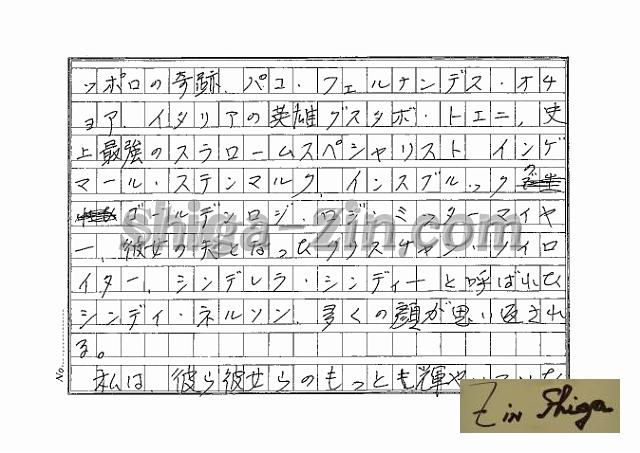 ッポロの奇跡、パコ・フェルナンデス・オチ
ョア、イタリアの英雄グスタボ・トエニ、史
上最強のスラロームスペシャリスト インゲ
マール・ステンマルク、インスブルックの
ゴールデンロジ・ロジ・ミッターマイヤ
ー、彼女の夫となったクリスチャン・ノイロ
イター、シンデレラ・シンディーと呼ばれた
シンディ・ネルソン、多くの顔が思い返され
る。
私は、彼ら彼女らのもっとも輝や
No.
shiga-zin.com
Zin Shiga